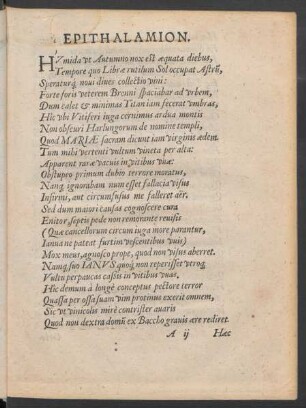 EPITHALAMION.
HVmida vt Autumno nox est æquata diebus,
Tempore quo Libiæ rutilum Sol occupat Astrũ,
Speraturq; noui diues collectio vini:
Forte foris veterem Bronni spaciabar ad vrbem,
Dum calet & minimas Titan iam fecerat vmbras,
Hic vbi Vitiferi iuga cernimus ardua montis
Non obscuri Harlungorum de nomine templi,
Quod MARIÆ sacram dicunt iam virginis ædem.
Tum mihi vertenti vultum vineta per alta:
Apparent raræ vacuis in vitibus vuæ:
Obstupeo primum dubio terrore moratus,
Nanq; ignorabam num esset fallacia visus
Infirmi, aut circumfusus me falleret aër.
Sed dum maiori causas cognoscere cura
Enitor, septis pede non remorante reuisi
(Quæ cancellorum circum iuga more parantur,
Ianua ne pateat furtim vescentibus vuis)
Mox meus agnosco prope, quod non visus aberret.
Namq; suo IANVS quoq; non reperisset verag
Vultu perpaucas captis in vitibus vuas,
Hic demum à longè conceptus pectore terror
Quassa per ossa suam vim protinus exerit omnem,
Sic vt vinicolis mirè contrister auaris
Quod non dextra domũ ex Baccho grauis ære rediret.
A ij Hæc